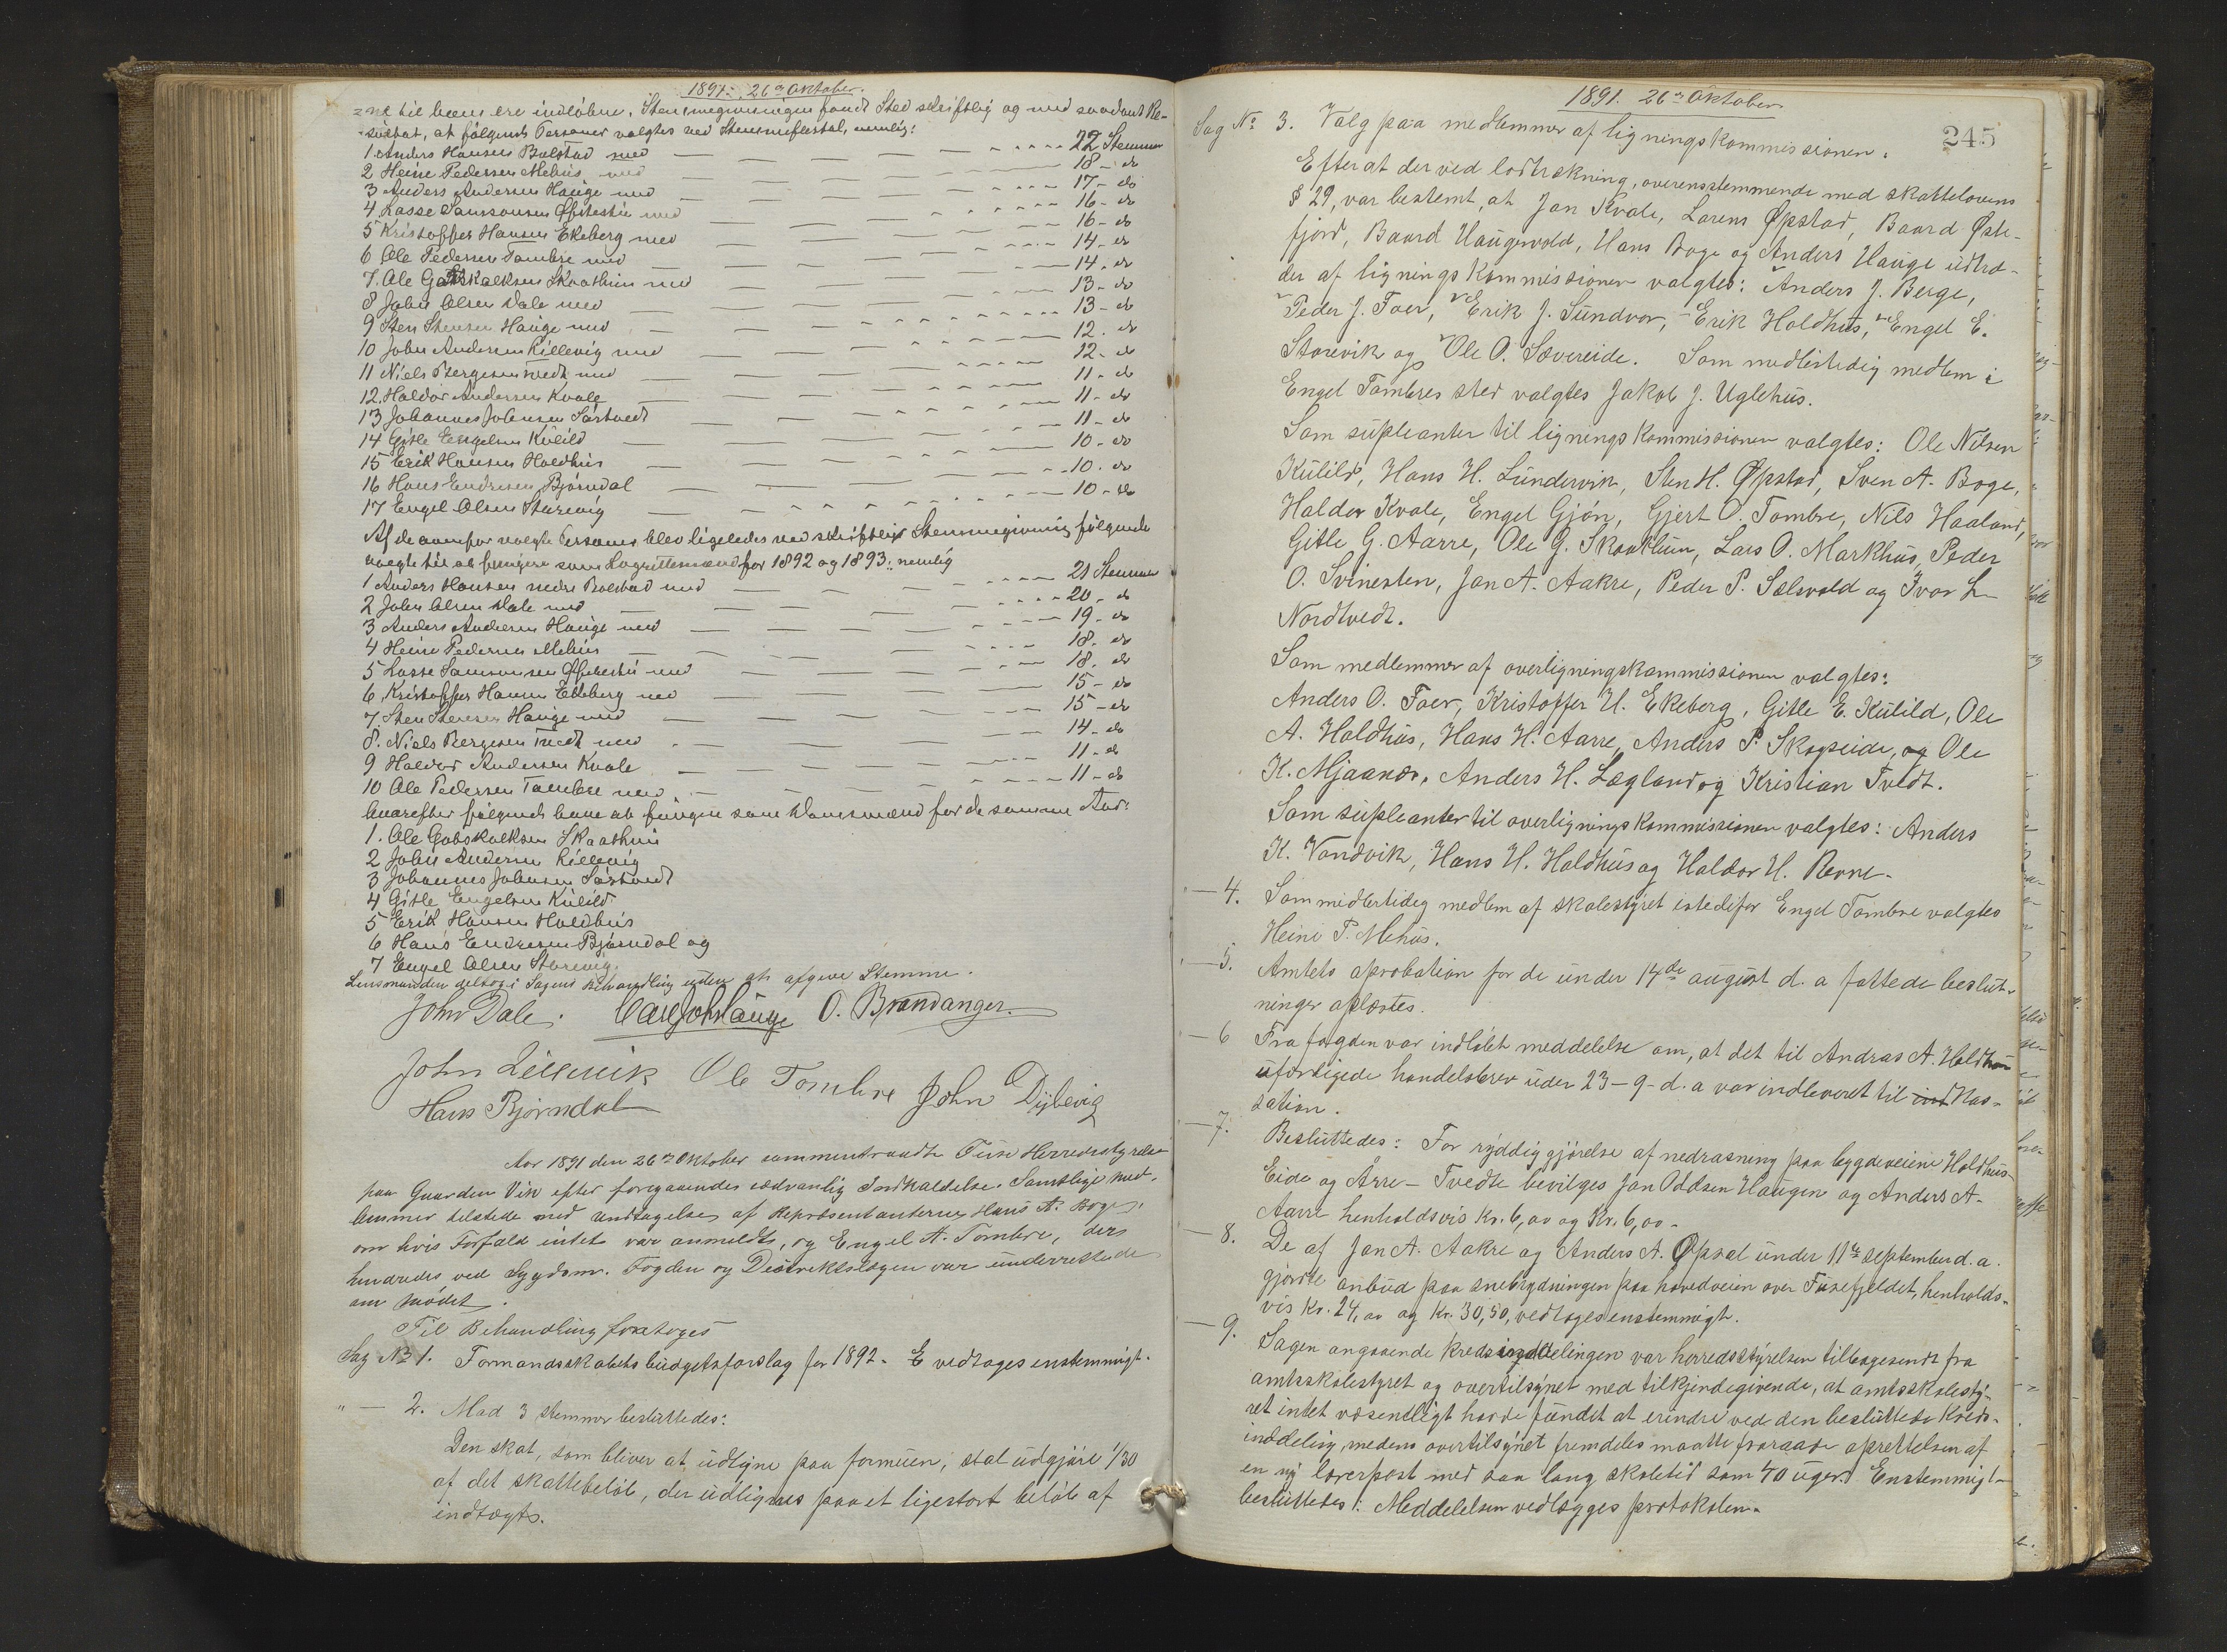 1891. 26de Oktober.
til ere indløbne. Stemmegivningen fandt Sted skriftlig og med saadant Re-
sultat, at følgende Personer valgtes ved Stemmeflertal, nemlig:
1. Anders Hansen Bolstad med 22 Stemmer
2 Heine Pedersen Mehus med 18 - do
3 Anders Andersen Hauge med 17 - do
4 Lasse Samsonsen med 16 - do
5 Kristoffer Hansen Ekeberg med 16 - do
6 Ole Pedersen Tombre med 14 - do
7. Ole Gotskalksen Skaathun med 14 - do
8 John Olsen Dale med 13 - do
9 Sten Stensen Hauge med 13 - do
10 John Andersen Lillevig med 12 - do
11 Niels Bergesen Tvedt med 12 - do
12. Haldor Andersen Kvale 11 - do
13 Johannes Johnsen Sørtvedt 11 - do
14 Gitle Engelsen Kulild 11 - do
15 Erik Hansen Holdhus 10 - do
16 Hans Endresen Bjørndal 10 - do
17 Engel Olsen Storevig 10 - do
Af de ovenfor valgte Personer blev ligeledes ved skriftlig Stemmegivning følgende
valgte til at fungere som Lagrettemænd for 1892 og 1893, nemlig
1 Anders Hansen nedre Bolstad med 21 Stemmer
2 John Olsen Dale med 20 - do
3 Anders Andersen Hauge med 19 - do
4 Heine Pedersen Mehus 18 - do
5 Lasse Samsonsen med 18 - do
6 Kristoffer Hansen Ekeberg med 15 - do
7. Sten Stensen Hauge med 15 - do
8. Niels Bergesen Tvedt med 14 - do
9 Haldor Andersen Kvale 11 - do
10 Ole Pedersen Tombre med 11 - do
hvorefter følgende have at fungere som Domsmænd for de samme Aar:
1. Ole Gotskalksen Skaathun
2 John Andersen Lillevig
3 Johannes Johnsen Sørtvedt
4 Gitle Engelsen Kulild
5 Erik Hansen Holdhus
6 Hans Endresen Bjørndal og
7 Engel Olsen Storevig.
Lensmanden deltog i Sagens Behandling uden at afgive Stemme.
John Dale. O. Brandanger.
John Lillevik Ole Tombre John Dybevig
Hans Bjørndal
Aar 1891 den 26de Oktober sammentraadte Fuse Herredsstyrelse
paa Gaarden Vik efter foregaaende sædvanlig Indkaldelse. Samtlige Med-
lemmer tilstede med Undtagelse af Repræsentanterne Hans A. Boge,
om hvis Forfald intet var anmeldt, og Engel A. Tombre, der
hindredes ved Sygdom. Fogden og Distriktslægen var underrettede
om Mødet.
Til Behandling foretoges
Sag No 1. Formandsskabets budgetsforslag for 1892. E vedtoges enstemmigt.
" — 2. Mod 3 stemmer besluttedes:
Den skat, som bliver at udligne paa formuen, skal udgjøre 1/30
af det skattebeløb, der udlignes paa et ligestort beløb af
indtægt.
1891. 26de Oktober
245
Sag No 3. Valg paa medlemmer af ligningskommissionen.
Efterat der ved lodtrækning, overensstemmende med skattelovens
§ 29, var bestemt, at Jan Kvale, Lorens Øpstad, Baard Øste-
fjord, Baard Haugevold, Hans Boge og Anders Hauge udtræ-
der af ligningskommissionen valgtes: Anders J. Berge,
Peder J. Foer, Erik J. Sundvor, Erik Holdhus, Engel E.
Storevik og Ole O. Sævereide. Som midlertidig medlem i
Engel Tombres sted valgtes Jakob J. Uglehus.
Som supleanter til ligningskommissionen valgtes: Ole Nilsen
Kulild, Hans H. Lundervik, Sten H. Øpstad, Sven A. Boge,
Haldor Kvale, Engel Gjøn, Gjert O. Tombre, Nils Haaland,
Gitle G. Aarre, Ole G. Skaathun, Lars O. Markhus, Peder
O. Svinesten, Jan A. Aakre, Peder P. Sælsvold og Ivar L
Nordtvedt.
Som medlemmer af overligningskommissionen valgtes:
Anders O. Foer, Kristoffer H. Ekeberg, Gitle E. Kulild, Ole
A. Holdhus, Hans H. Aarre, Anders P. Skogseide, og Ole
K. Mjaanes, Anders H. Lægland og Kristian Tvedt.
Som supleanter til overligningskommissionen valgtes: Anders
K. Vandvik, Hans H. Holdhus og Haldor H. Revne.
— 4. Som midlertidig medlem af skolestyret istedifor Engel Tombre valgtes
Heine P. Mehus.
— 5. Amtets aprobation for de under 14de august d. a fattede beslut-
ninger oplæstes.
— 6 Fra fogden var indløbet meddelelse om, at det til Andras A. Holdhus
ufærdigede handelsbrev under 23-9- d. a var indleveret til ind Kas-
sation.
— 7. Besluttedes: For ryddiggjørelse af nedrasning paa bygdeveiene Holdhus-
Eide og Arre - Tvedte bevilges Jan Oddsen Haugen og Anders A.
Aarre henholdsvis Kr. 6,00 og Kr. 6,00.
— 8. De af Jan A. Aakre og Anders A. Øpsal under 11te september d. a.
gjorte anbud paa snebrydningen paa hovedveien over Fusefjeldet, henholds-
vis Kr. 24,00 og Kr. 30,50, vedtoges enstemmigt.
— 9. Sagen angaaende kredsinddelingen var herredsstyrelsen tilbagesendt fra
amtsskolestyret og overtilsynet med tilkjendegivende, at amtsskolesty-
ret intet væsentligt havde fundet at erindre ved den besluttede kreds-
inddeling, medens overtilsynet fremdeles maatte fraraade oprettelsen af
en ny lærerpost med saa lang skoletid som 40 uger. Enstemmigt
besluttedes: Meddelelsen vedlægges protokolen.